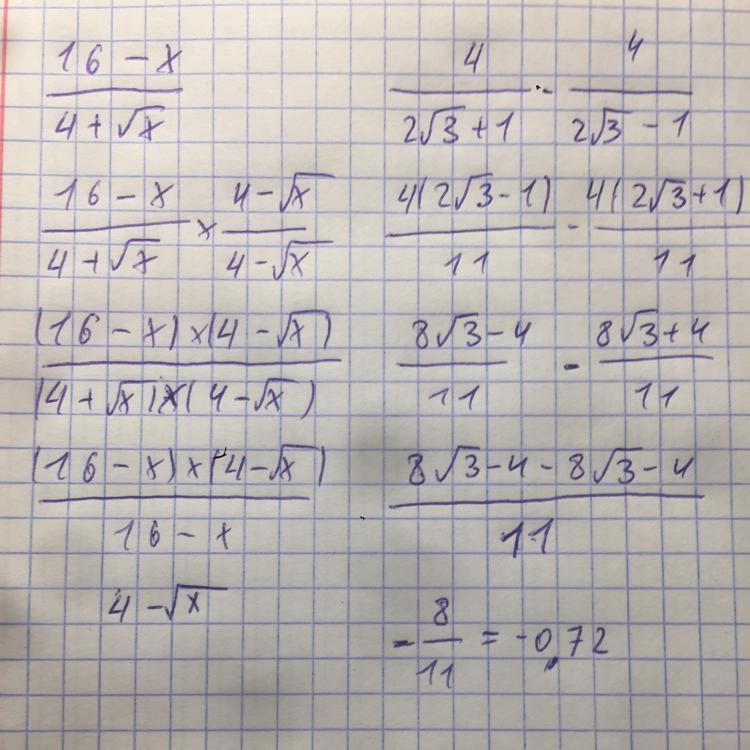 16 - x
4 + √x
16 - x / 4 + √x × 4 - √x / 4 - √x
(16 - x) × (4 - √x)
(4 + √x) × (4 - √x)
(16 - x) × (4 - √x)
16 - x
4 - √x
4 / 2√3 + 1 - 4 / 2√3 - 1
4(2√3 - 1) / 11 - 4(2√3 + 1) / 11
8√3 - 4 / 11 - 8√3 + 4 / 11
8√3 - 4 - 8√3 - 4
11
- 8 / 11 = -0,72